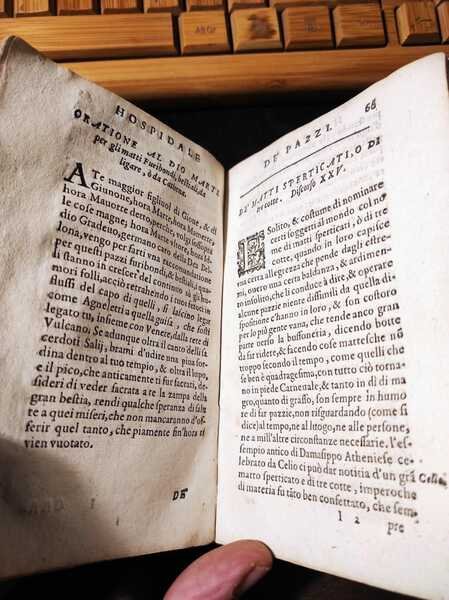 HOSPIDALE
ORATIONE AL DIO MARTE
per gli matti Furibondi, bestiali, da
ligare, ò da Catena.
A Te maggior figliuol di Gioue, & di
Giunone, hora Marte, hora Mauorte,
hora Mauorte detto, perche
le cose magne, hora Marte
dio Gradeuo, germano caro della Dea
lona, vengo per farti vna raccomandatione
per questi pazzi furibondi, & bestiali, quali
stanno in crescer' del continuo gli hu
mori folli, acciò retrahendo i tuoi feroci in
flussi del capo di quelli, si lascino legar
come Agneletti a quella guisa, che fosti
legato tu, insieme con Venere, dalla rete di
Vulcano. Se adunque oltra il canto delli sa
cerdoti Salij, brami d'odire vna piua sor
dina dentro al tuo tempio, & oltra il lupo,
e il pico, che anticamente ti fur sacrati, de
sideri di veder sacrata a te la zampa della
gran bestia, rendi qualche speranza di salute
te a quei miseri, che non mancaran d'of
ferir quel tanto, che piamente fin'hora ti
vien vuotato.
DE'
DE' PAZZI. 66
DE' MATTI SPERTICATI, O DI
tre cotte. Discorso XXV.
E Solito, & costume di nominare
certi soggetti al mondo col no
me di matti sperticati, ò di tre
cotte, quando in loro capisce
certa allegrezza che pende dagli estre
mi, ouero vna certa baldanza, & ardimen
to insolito, che li conduce à dite, & operare
alcune pazzie niente dissimili da quella di
spositione c'hanno in loro, & son costoro
per lo più gente vana, che tende anco gran
parte verso la buffoneria, dicendo botte
da far ridere, & facendo cose matte sch nò
troppo secondo il tempo, come quelli che
Se ben è quadragesima, con tutto ciò torna
no in piede Carneuale, & tanto in dì di ma
gro, quanto di grasso, son sempre in humo
re di far pazzie, non risguardando (come si
dice) al tempo, ne al luogo, ne alle persone,
ne a mill'altre circonstanze necessarie. l'es
sempio antico di Damasippo Atheniese ce
lebrato da Celio ci può dar notitia d'un grã Celio.
matto sperticato e di tre cotte, imperoche
di materia fu tãto ben confettato, che sem
I 2 pre